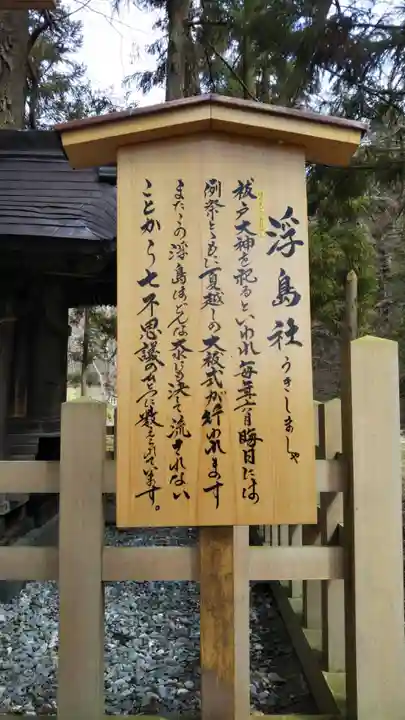 浮島社 うきしましゃ
祓戸大神を祀るといわれ毎年六月晦日には
例祭とともに夏越しの大祓式が行われます
またこの浮島はどんな大水でも決して流されない
ことから七不思議の一つに数えられています。